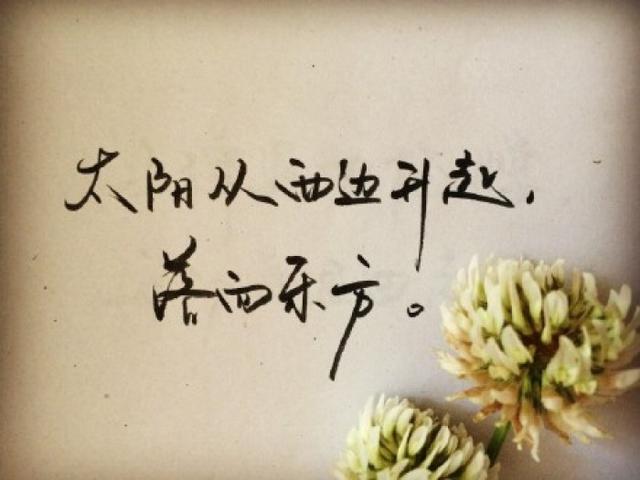 太阳从西边升起，
落向东方。